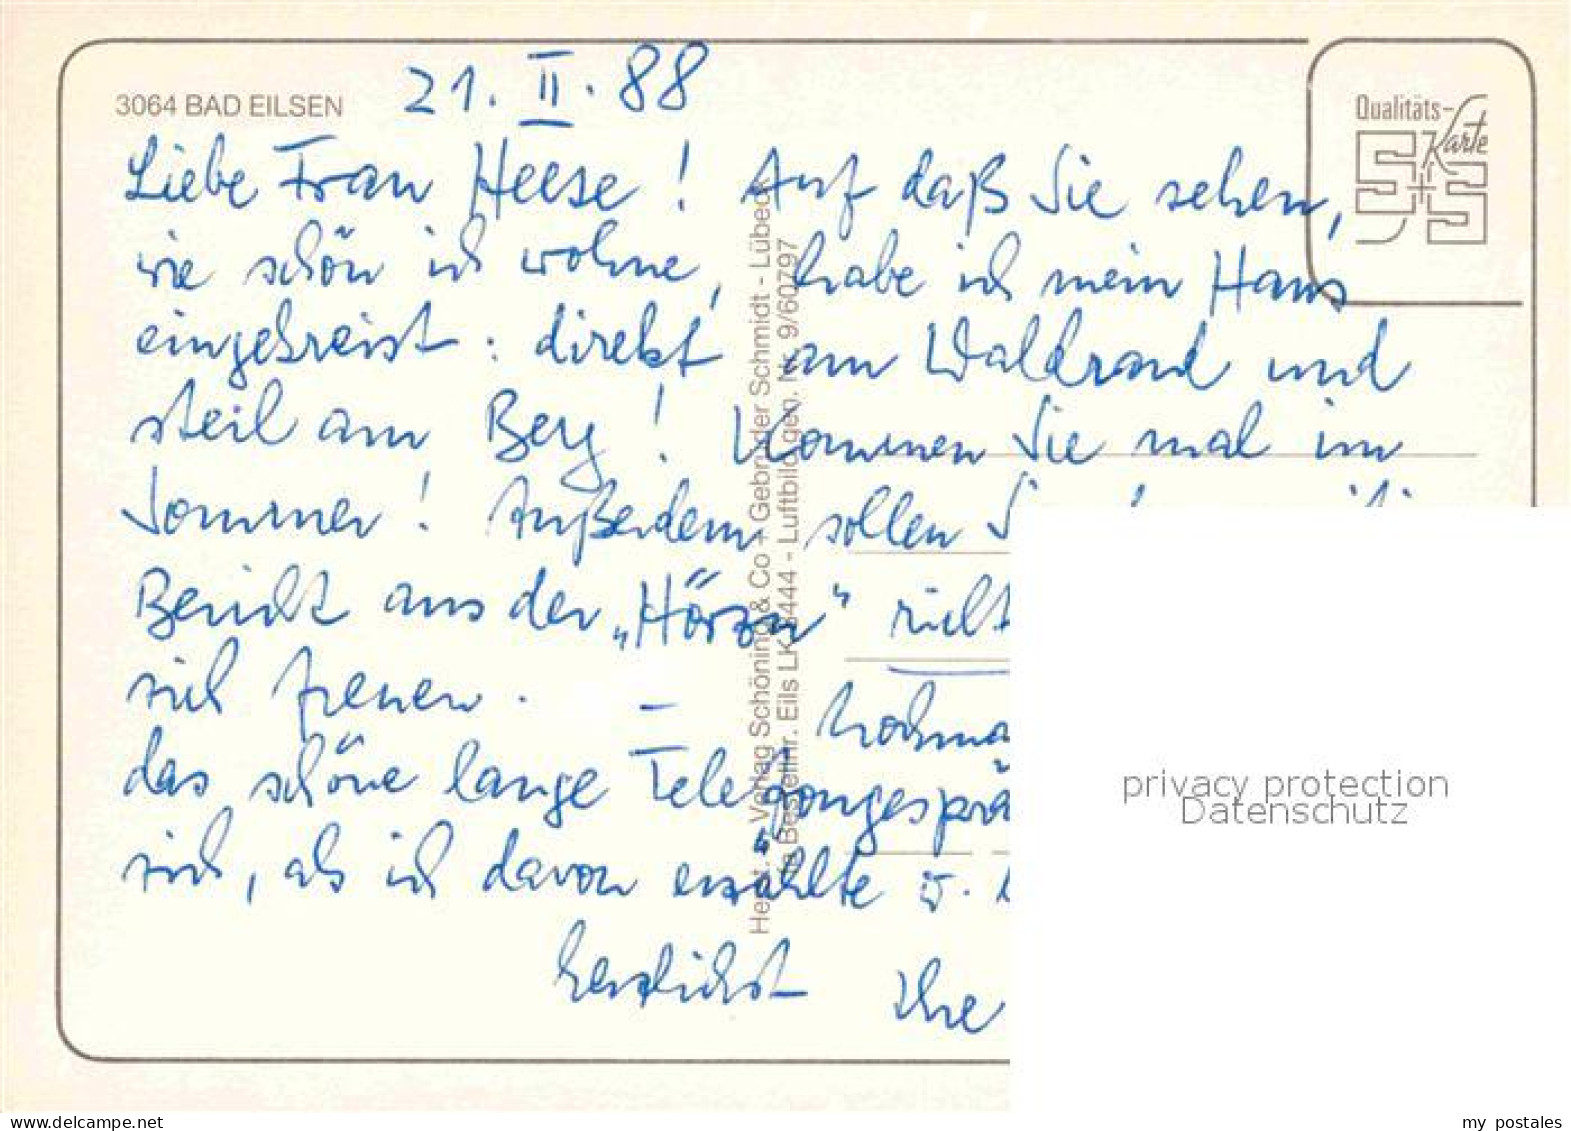 3064 BAD EILSEN
21. II. 88
Qualitäts-
Karte
S+S
Liebe Frau Heese! Auf daß Sie sehen,
wie schön ich wohne, habe ich mein Haus
eingekreist: direkt am Waldrand und
steil am Berg! Kommen Sie mal im
Sommer! Außerdem sollen
Bericht aus der „Hörzu“
sich freuen. –
das schöne lange
sich, als ich davon erzählte u.
herzlichst Ihre
Verlag Schöning & Co + Gebrüder Schmidt - Lübeck
Bestellnr. Eils LK 8444 - Luftbild gen. Nr. 9/60797
privacy protection
Datenschutz
www.delcampe.net
my_postales